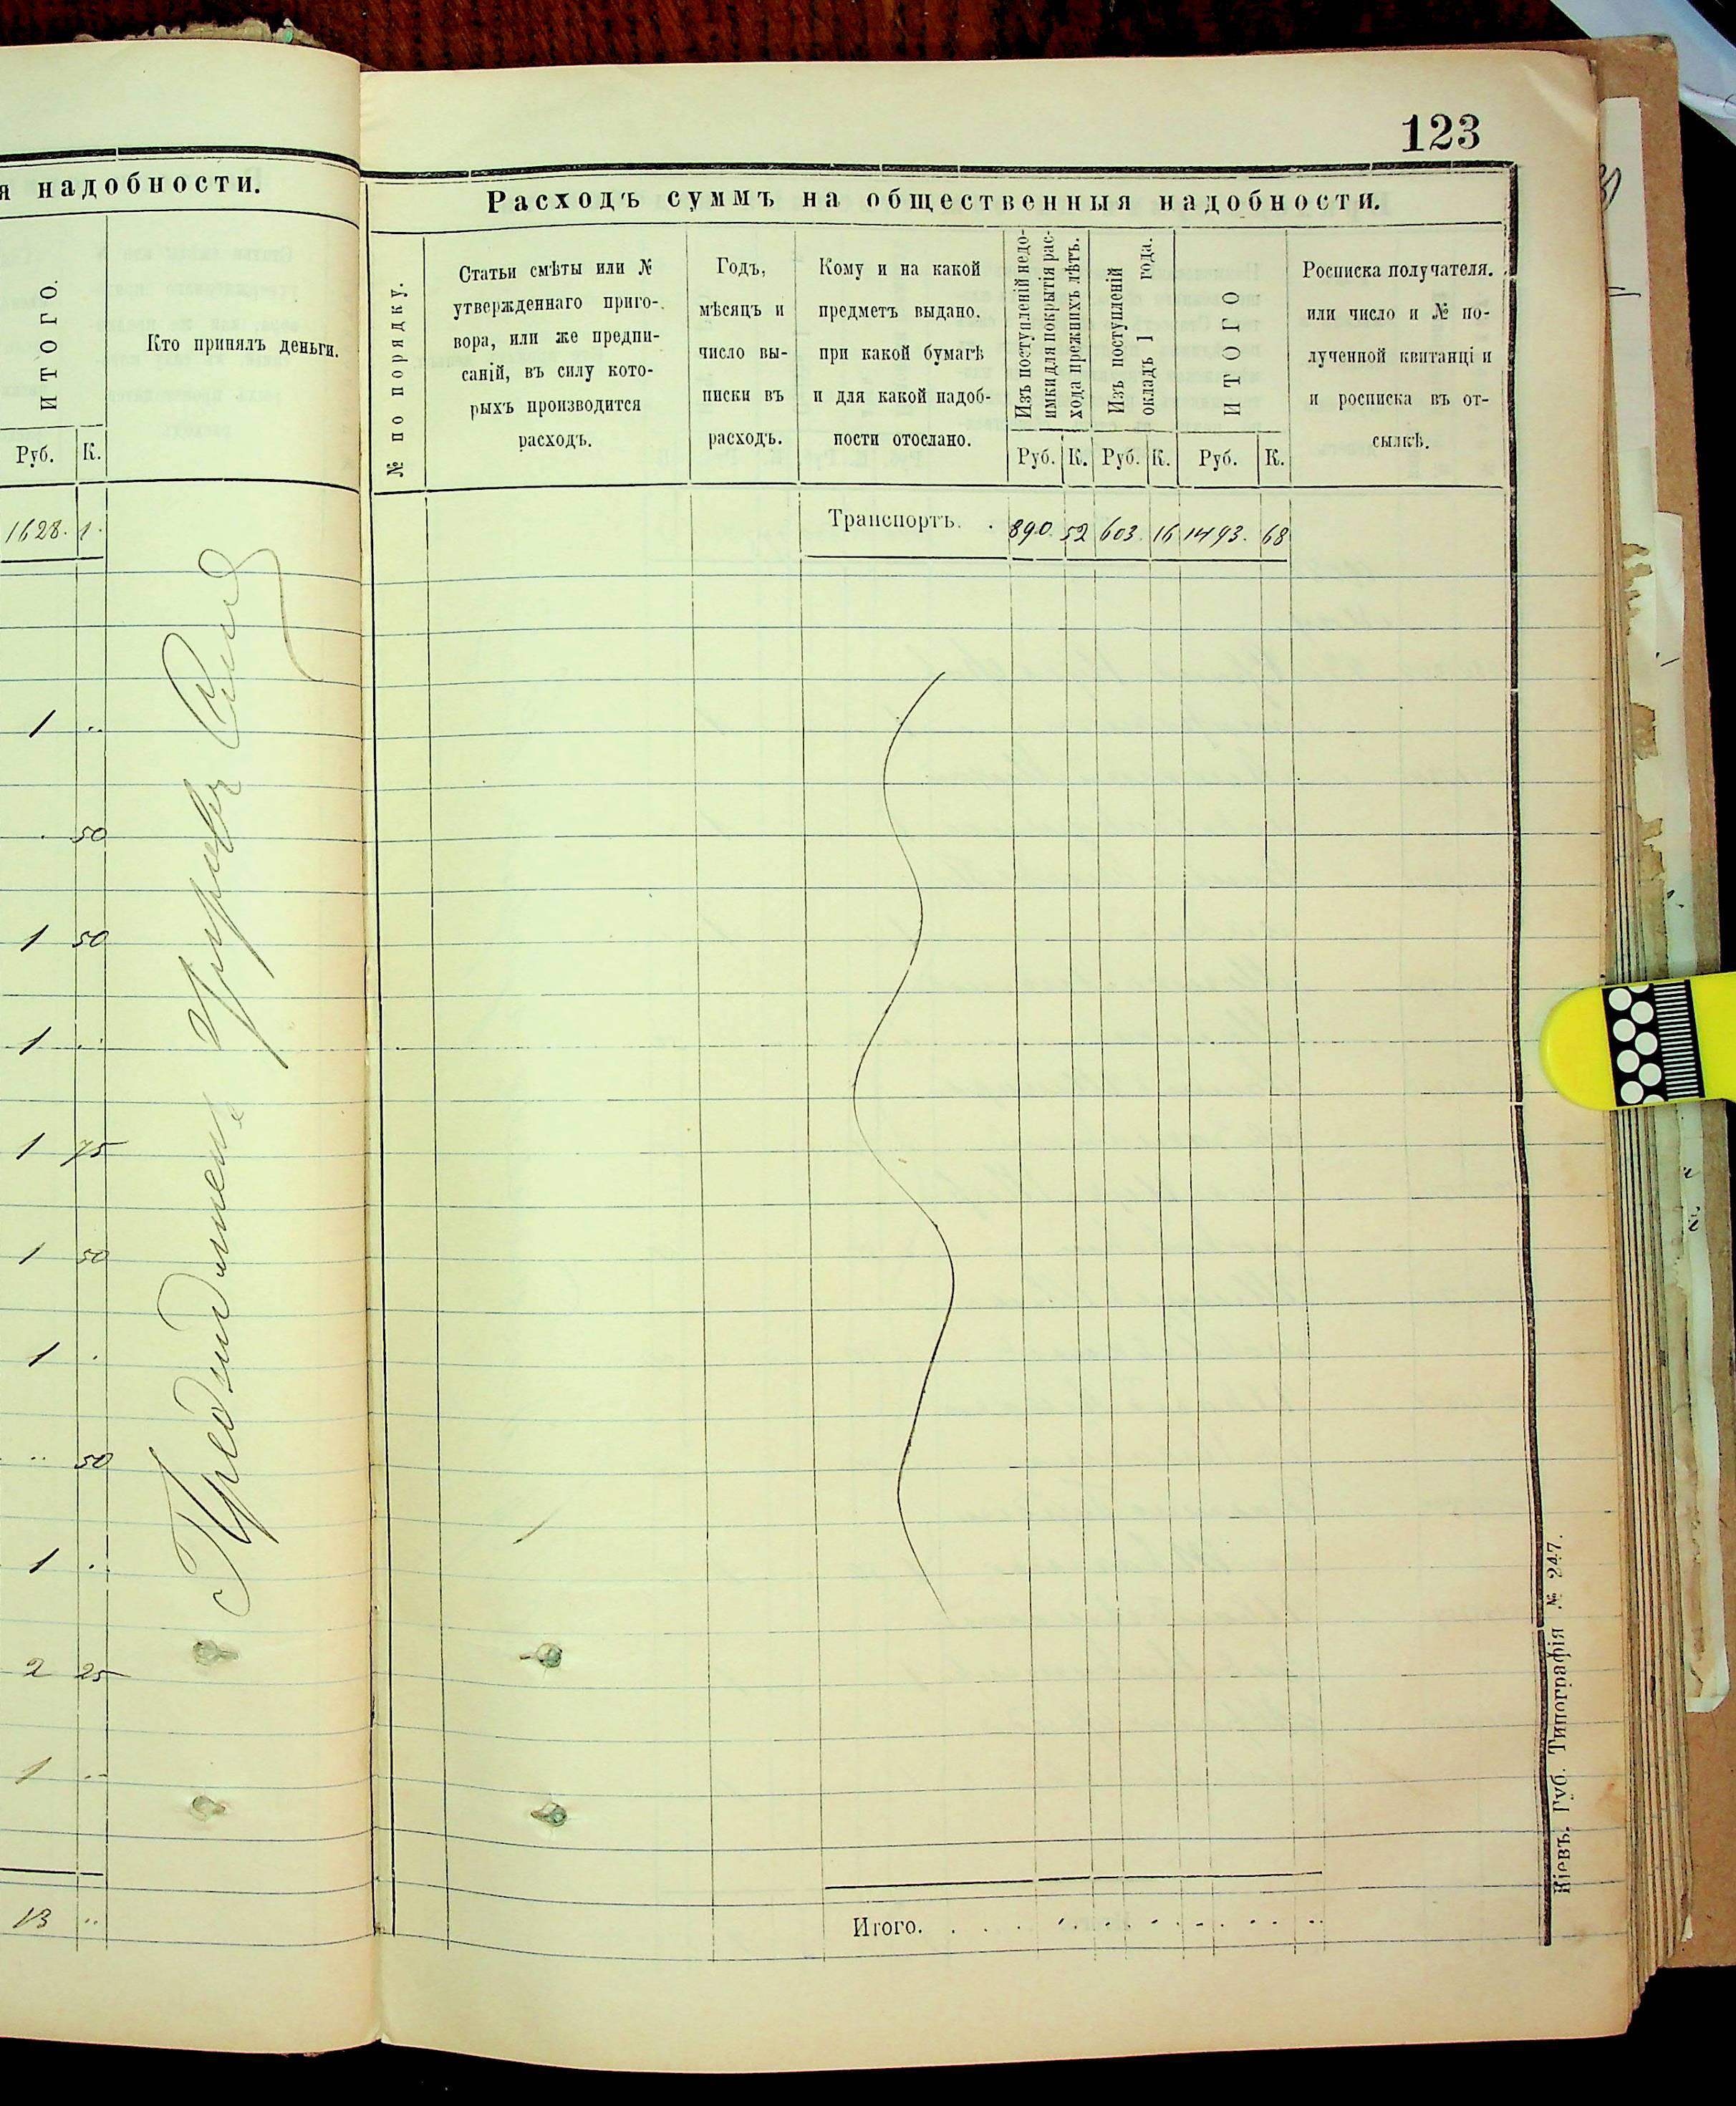 123
я надобности.
ИТОГО.
Кто принялъ деньги.
Руб. К.
1628. 1.
1 ..
. 50
1 50
1 ..
1 75
1 50
1 .
.. 50
1 .
2 25
1 ..
13 ..
Расходъ суммъ на общественныя надобности.
№ по порядку.
Статьи смѣты или №
утвержденнаго приго-
вора, или же предпи-
саній, въ силу кото-
рыхъ производится
расходъ.
Годъ,
мѣсяцъ и
число вы-
писки въ
расходъ.
Кому и на какой
предметъ выдано.
при какой бумагѣ
и для какой надоб-
ности отослано.
Изъ поступленій недо-
имки для покрытія рас-
хода прежнихъ лѣтъ.
Изъ поступленій
окладъ 1 года.
ИТОГО
Росписка получателя.
или число и № по-
лученной квитанці и
и росписка въ от-
сылкѣ.
Руб. К. Руб. К. Руб. К.
Транспортъ. . 890. 52 603. 16 1493. 68
Итого. . . . . . . . . . . .
Кіевъ. Губ. Типографія № 247.